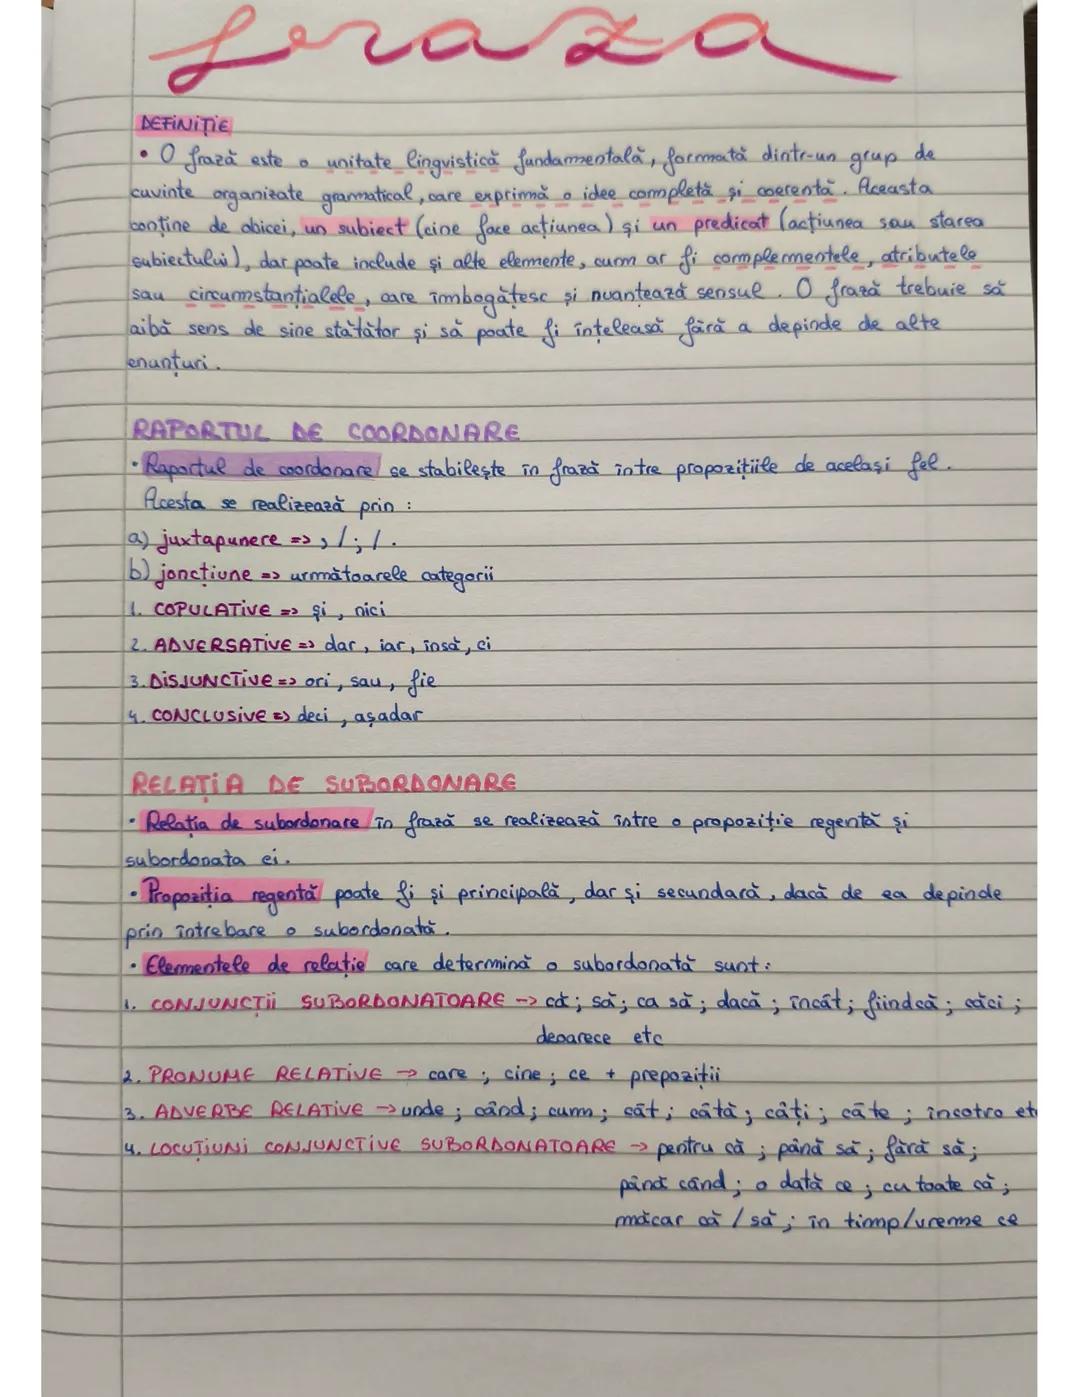 fraza
DEFINIȚIE
• O frază este o unitate lingvistică fundamentală, formată dintr-un grup de
cuvinte organizate gramatical, care exprimă o idee completă și coerentă. Aceasta
conține de obicei, un subiect (cine face acțiunea) și un predicat (acțiunea sau starea
subiectului), dar poate include și alte elemente, cum ar fi complementele, atributele
sau circumstanțialele, care îmbogățesc și nuanțează sensul. O frază trebuie să
aibă sens de sine stătător și să poate fi înțeleasă fără a depinde de alte
enunțuri.
RAPORTUL DE COORDONARE
• Raportul de coordonare se stabilește în frază între propozițiile de același fel.
Acesta se realizează prin :
a) juxtapunere => , / ; / .
b) joncțiune => următoarele categorii
1. COPULATIVE => și, nici
2. ADVERSATIVE => dar, iar, însă, ci
3. DISJUNCTIVE => ori, sau, fie
4. CONCLUSIVE => deci, așadar
RELAȚIA DE SUBORDONARE
• Relația de subordonare în frază se realizează între o propoziție regentă și
subordonata ei.
• Propoziția regentă poate fi și principală, dar și secundară, dacă de ea depinde
prin întrebare o subordonată.
• Elementele de relație care determină o subordonată sunt:
1. CONJUNCȚII SUBORDONATOARE -> că; să; ca să; dacă; încât; fiindcă; căci;
deoarece etc
2. PRONUME RELATIVE -> care ; cine; ce + prepoziții
3. ADVERBE RELATIVE -> unde ; când; cum; cât; câtă; câți; câte ; încotro etc
4. LOCUȚIUNI CONJUNCTIVE SUBORDONATOARE -> pentru că ; până să; fără să;
până când; o dată ce ; cu toate că;
măcar că / să; în timp/vreme ce